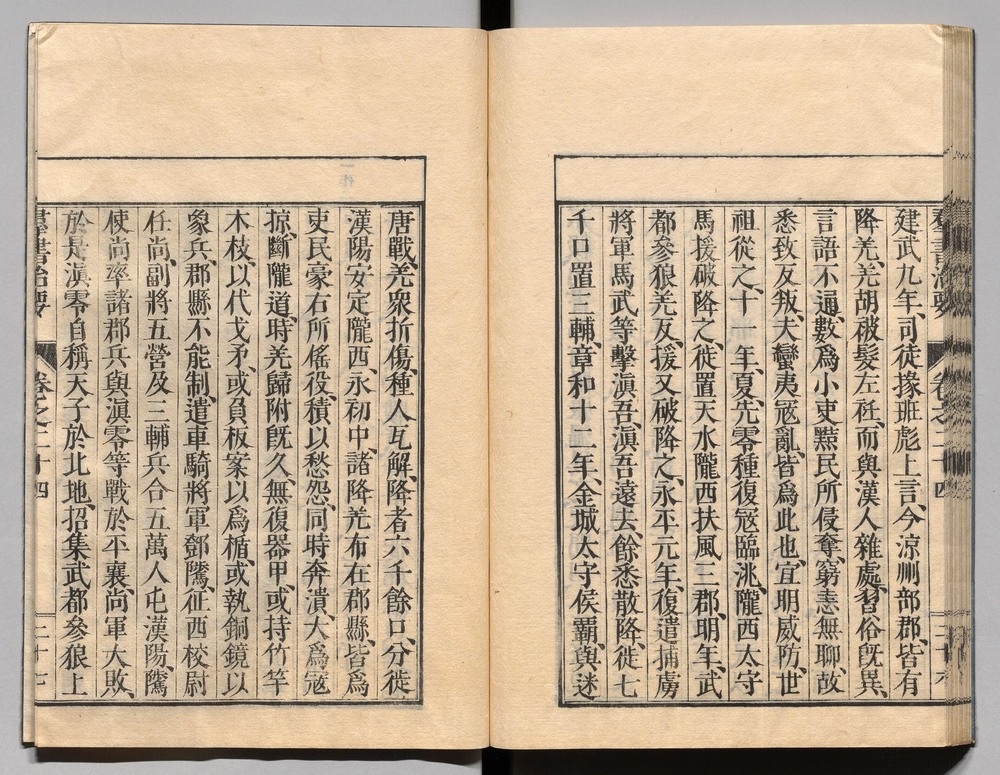 羣書治要 卷之二十四 二十六
建武九年、司徒掾班彪上言、今涼州部郡、皆有
降羌、羌胡被髮左衽、而與漢人雜處、習俗既異、
言語不通、數爲小吏黠民所侵奪、窮恚無聊、故
悉致反叛、夫蠻夷寇亂、皆爲此也、宜明威防、世
祖從之、十一年、夏、先零種復寇臨洮、隴西太守
馬援破降之、徙置天水隴西扶風三郡、明年、武
都參狼羌反、援又破降之、永平元年、復遣捕虜
將軍馬武等擊滇吾、滇吾遠去、餘悉散降、徙七
千口置三輔、章和十二年、金城太守侯霸、與迷
唐戰、羌衆折傷、種人瓦解、降者六千餘口、分徙
漢陽安定隴西、永初中諸降羌布在郡縣、皆爲
吏民豪右所傜役、積以愁怨、同時奔潰、大爲寇
掠、斷隴道、時羌歸附既久、無復器甲、或持竹竿
木枝、以代戈矛、或負板案以爲楯、或執銅鏡以
象兵、郡縣不能制、遣車騎將軍鄧騭、征西校尉
任尚、副將五營及三輔兵合五萬人屯漢陽、騭
使尚率諸郡兵與滇零等戰於平襄、尚軍大敗、
於是滇零自稱天子於北地、招集武都參狼上
羣書治要 卷之二十四 二十七